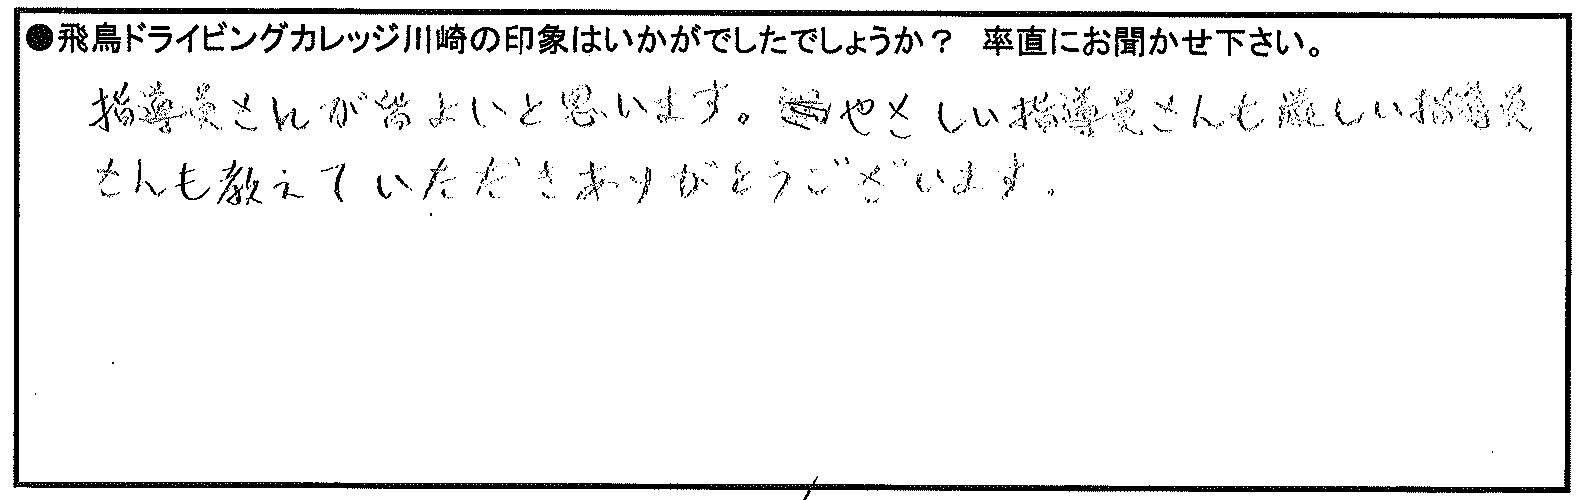 ●飛鳥ドライビングカレッジ川崎の印象はいかがでしたでしょうか？ 率直にお聞かせ下さい。
指導員さんが皆よいと思います。やさしい指導員さんも厳しい指導員
さんも教えていただきありがとうございます。